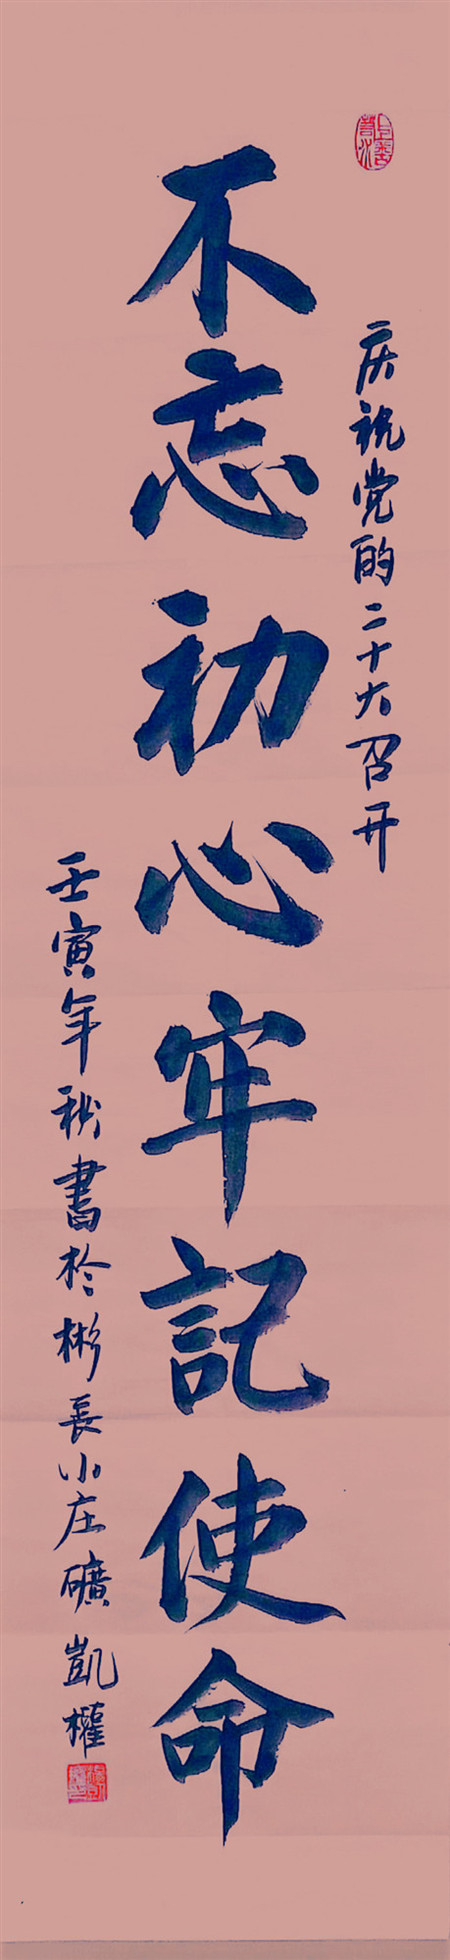 庆祝党的二十大召开
不忘初心牢記使命
壬寅年秋書於彬長小庄礦凱權